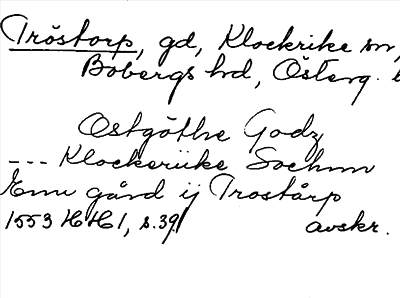 Tröstorp, gd, Klockrike sn,
Bobergs hd, Österg.
Ostgöthe Godz
--- Klockeriike Sochnn
Enn gård ij Trostårp
1553 HH1, s. 39 avskr.